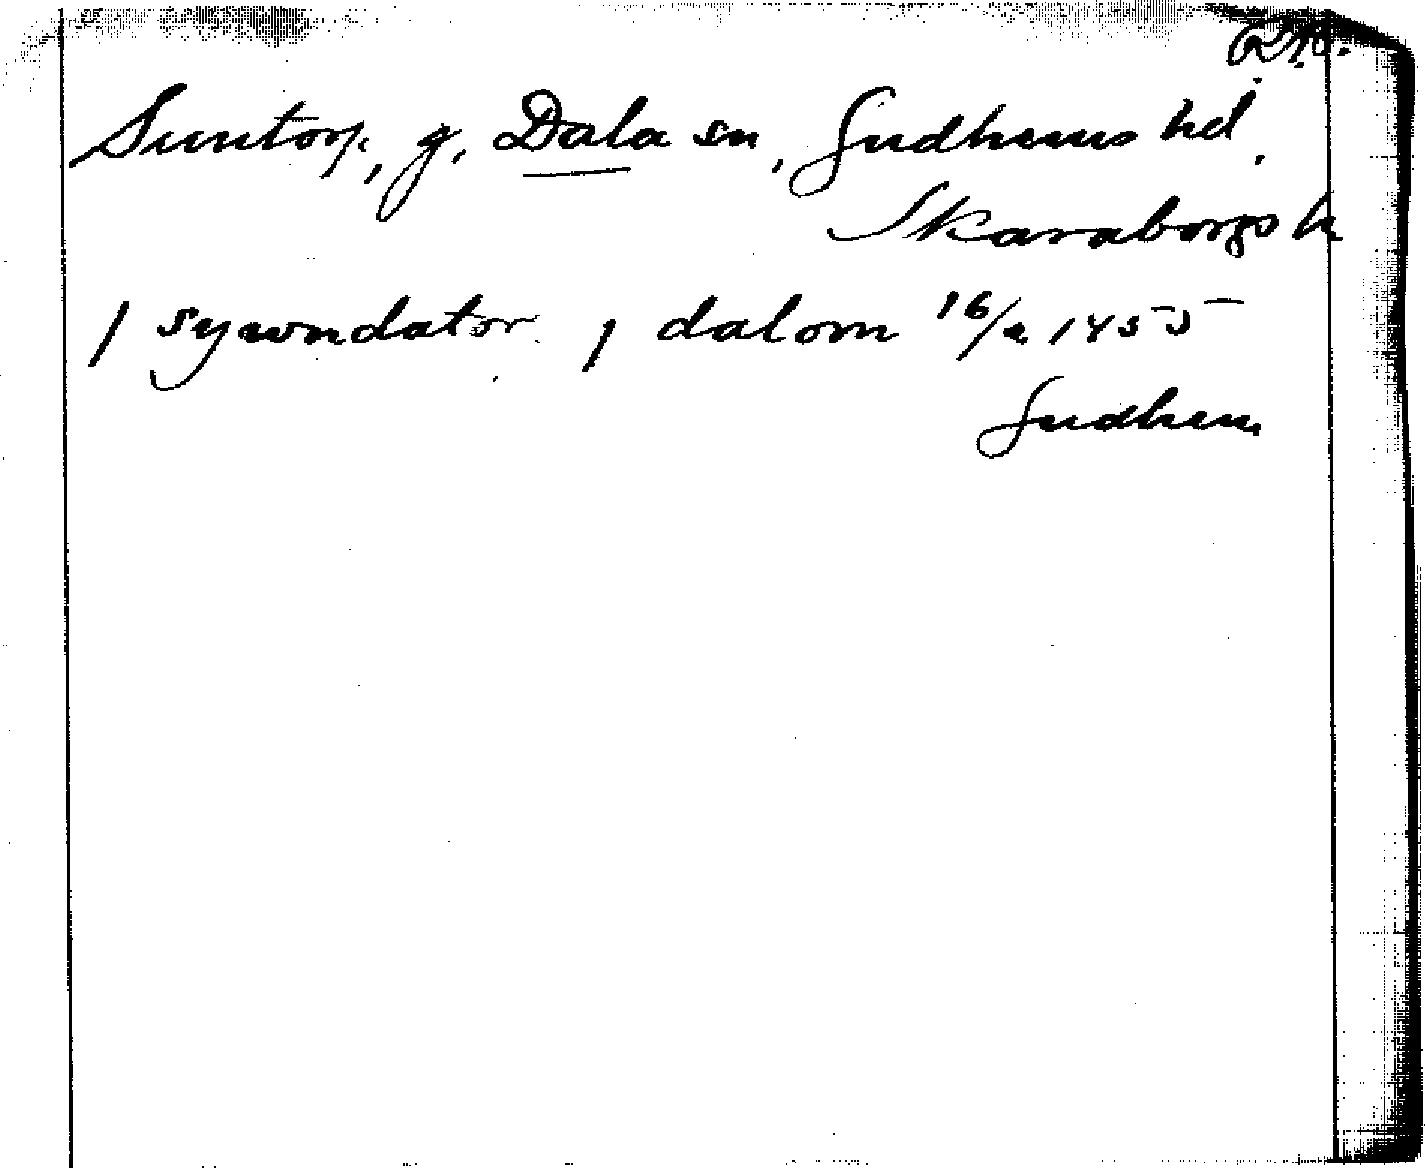 R.A.
Suntorp, g, Dala sn, Gudhems hd,
Skaraborgs l.
j sywndator j dalom 16/2 1455
Gudhem